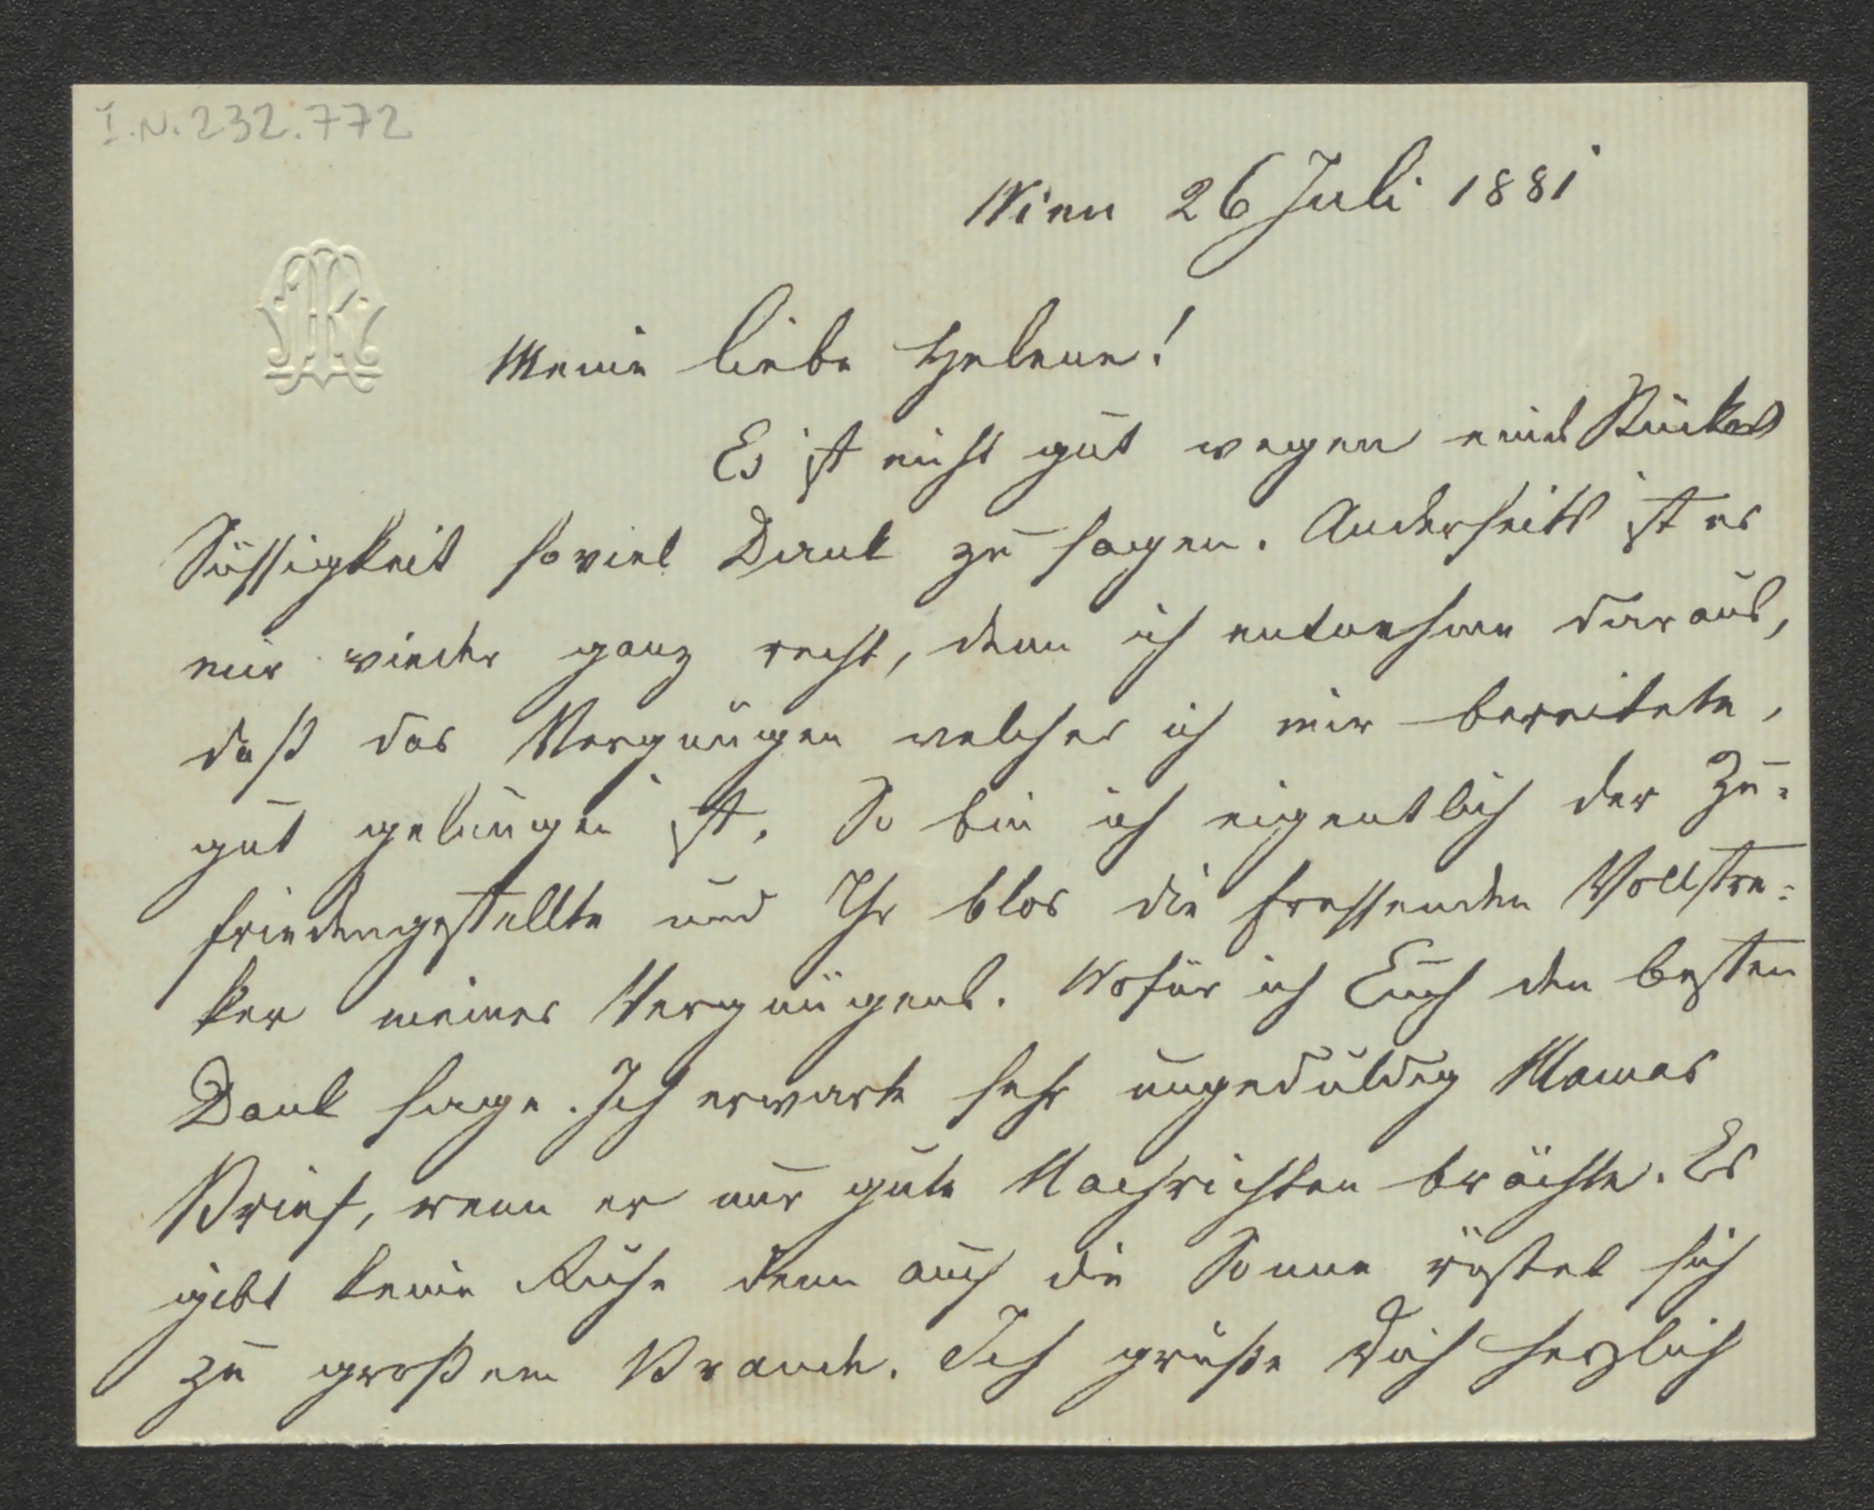 I.N. 232.772
Wien 26 Juli 1881
Meine liebe Helene!
Es ist nicht gut wegen eines Stückes
Süssigkeit soviel Dank zu sagen. Anderseits ist es
mir wieder ganz recht, denn ich entnehme daraus,
daß das Vergnügen welches ich mir bereitete,
gut gelungen ist. So bin ich eigentlich der Zu-
friedengestellte und Ihr blos die fressenden Vollstre-
ker meines Vergnügens. Wofür ich Euch den besten
Dank sage. Ich erwarte sehr ungeduldig Mamas
Brief, wenn er nur gute Nachrichten brächte. Es
gibt keine Ruhe denn auch die Sonne rüstet sich
zu großem Brande. Ich grüße Dich herzlich